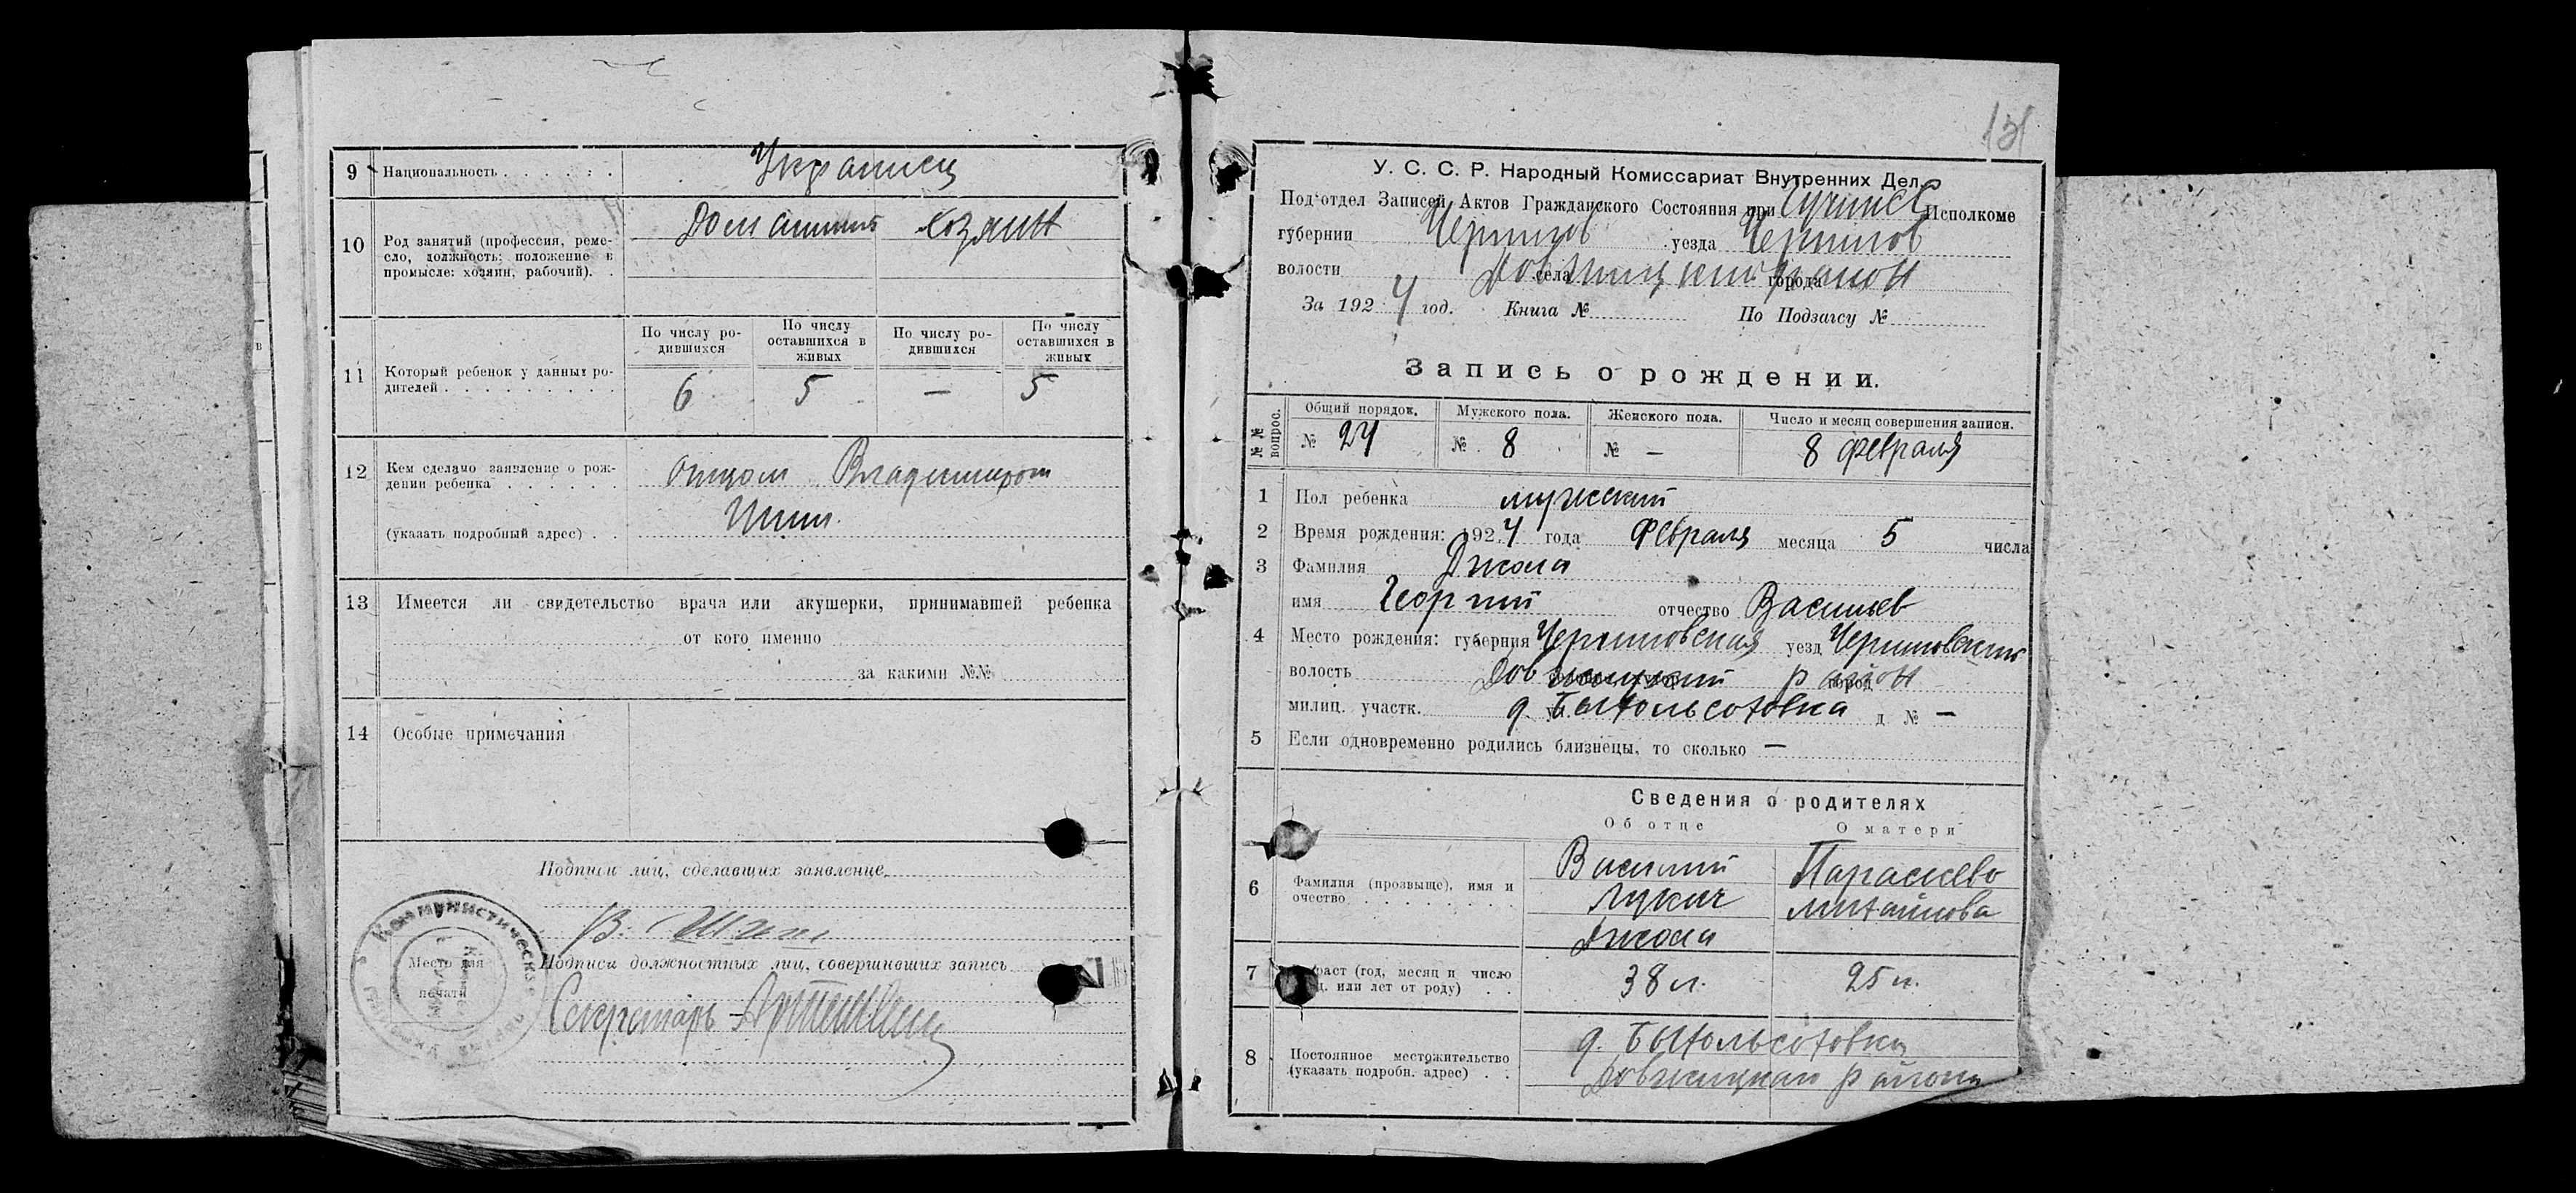 9 Национальность . . . . . . Украинец
10 Род занятий (профессия, реме-
сло, должность: положение в
промысле: хозяин, рабочий). .
Домашний хозяин
По числу ро-
дившихся
По числу
оставшихся в
живых
По числу ро-
дившихся
По числу
оставшихся в
живых
11 Который ребенок у данных ро-
дителей . . . . . . . . . .
6 5 — 5
12 Кем сделано заявление о рож-
дении ребенка . . . . . .
отцом Владимиром
(указать подробный адрес) . .
13 Имеется ли свидетельство врача или акушерки, принимавшей ребенка
от кого именно
за какими №№
14 Особые примечания
Подписи лиц, сделавших заявление
В.
Место для
печати
Подписи должностных лиц, совершивших запись
Секретарь
131
У. С. С. Р. Народный Комиссариат Внутренних Дел.
Под'отдел Записей Актов Гражданского Состояния при Исполкоме
губернии Чернигов уезда Чернигов
волости села города
За 1924 год. Книга № По Подзагсу №
Запись о рождении.
№ № вопрос.
Общий порядок. Мужского пола. Женского пола. Число и месяц совершения записи.
№ 24 № 8 № — 8 февраля
1 Пол ребенка мужский
2 Время рождения: 1924 года февраля месяца 5 числа
3 Фамилия
имя Георгий отчество Васильев
4 Место рождения: губерния Черниговская уезд Черниговский
волость район город
милиц. участк. д. д №—
5 Если одновременно родились близнецы, то сколько —
Сведения о родителях
Об отце О матери
6 Фамилия (прозвыще), имя и
очество . . . . . . . . .
Василий
Лукич
Параскева
Михайлова
7 Возраст (год, месяц и число
рожд. или лет от роду) . .
38 л. 25 л.
8 Постоянное местожительство
(указать подробн. адрес) . .
д.
района